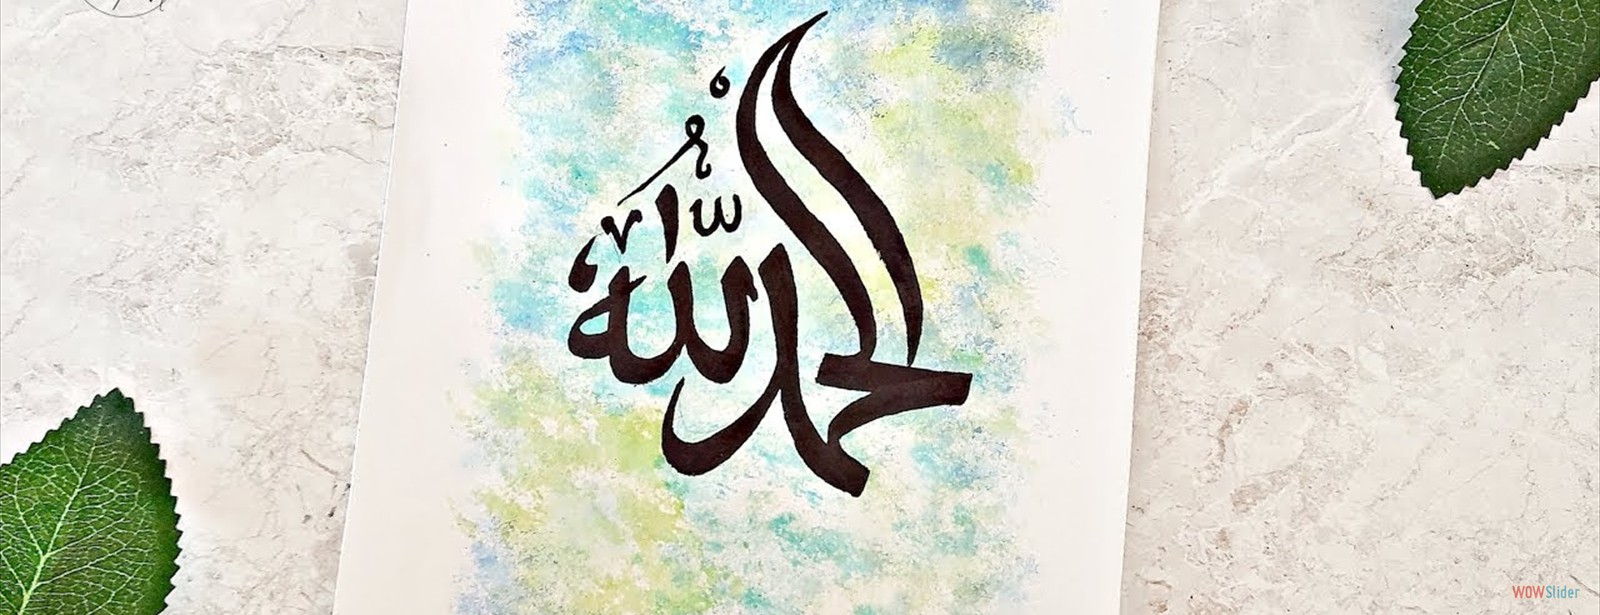 الحمد لله
WOWSlider